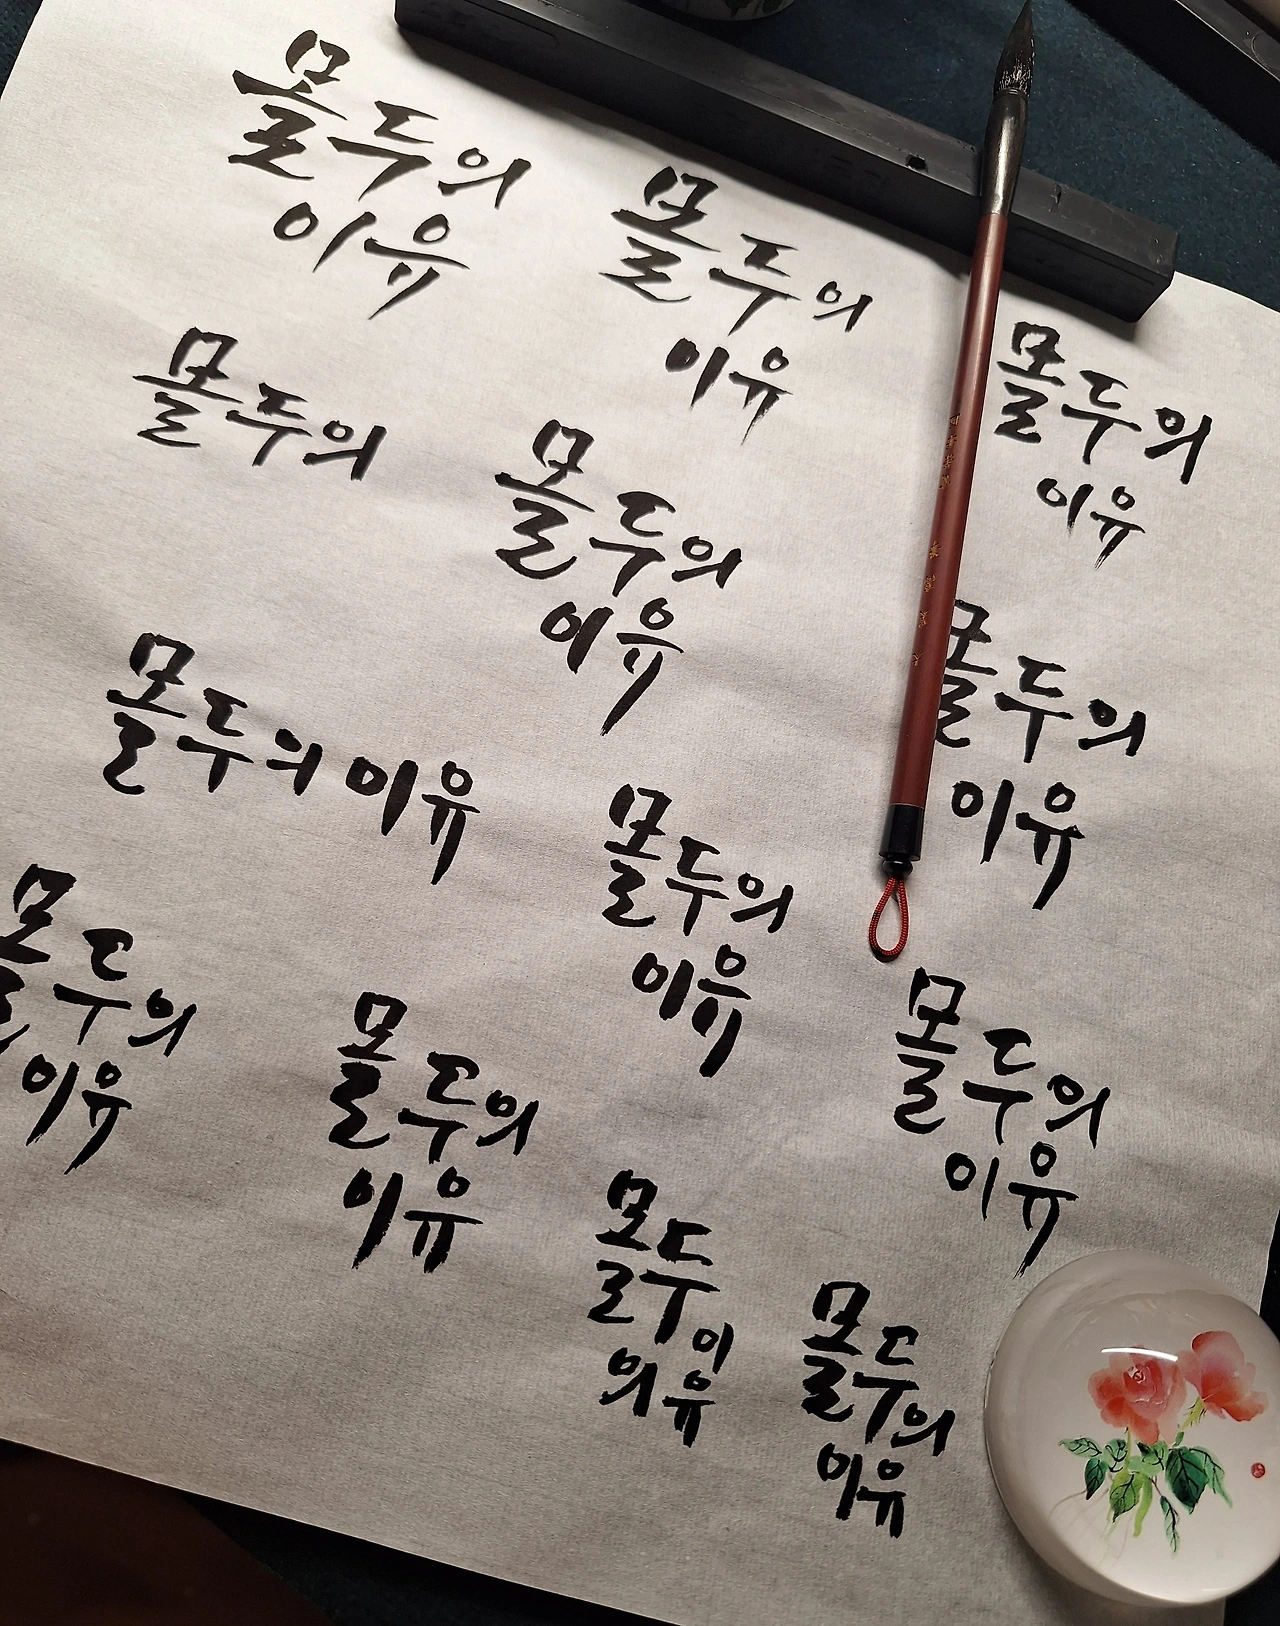 몰두의
이유
몰두의
이유
몰두의
이유
몰두의
몰두의
이유
몰두의
이유
몰두의 이유
몰두의
이유
몰두의
이유
몰두의
이유
몰두의
이유
몰두
이
의유
몰두의
이유